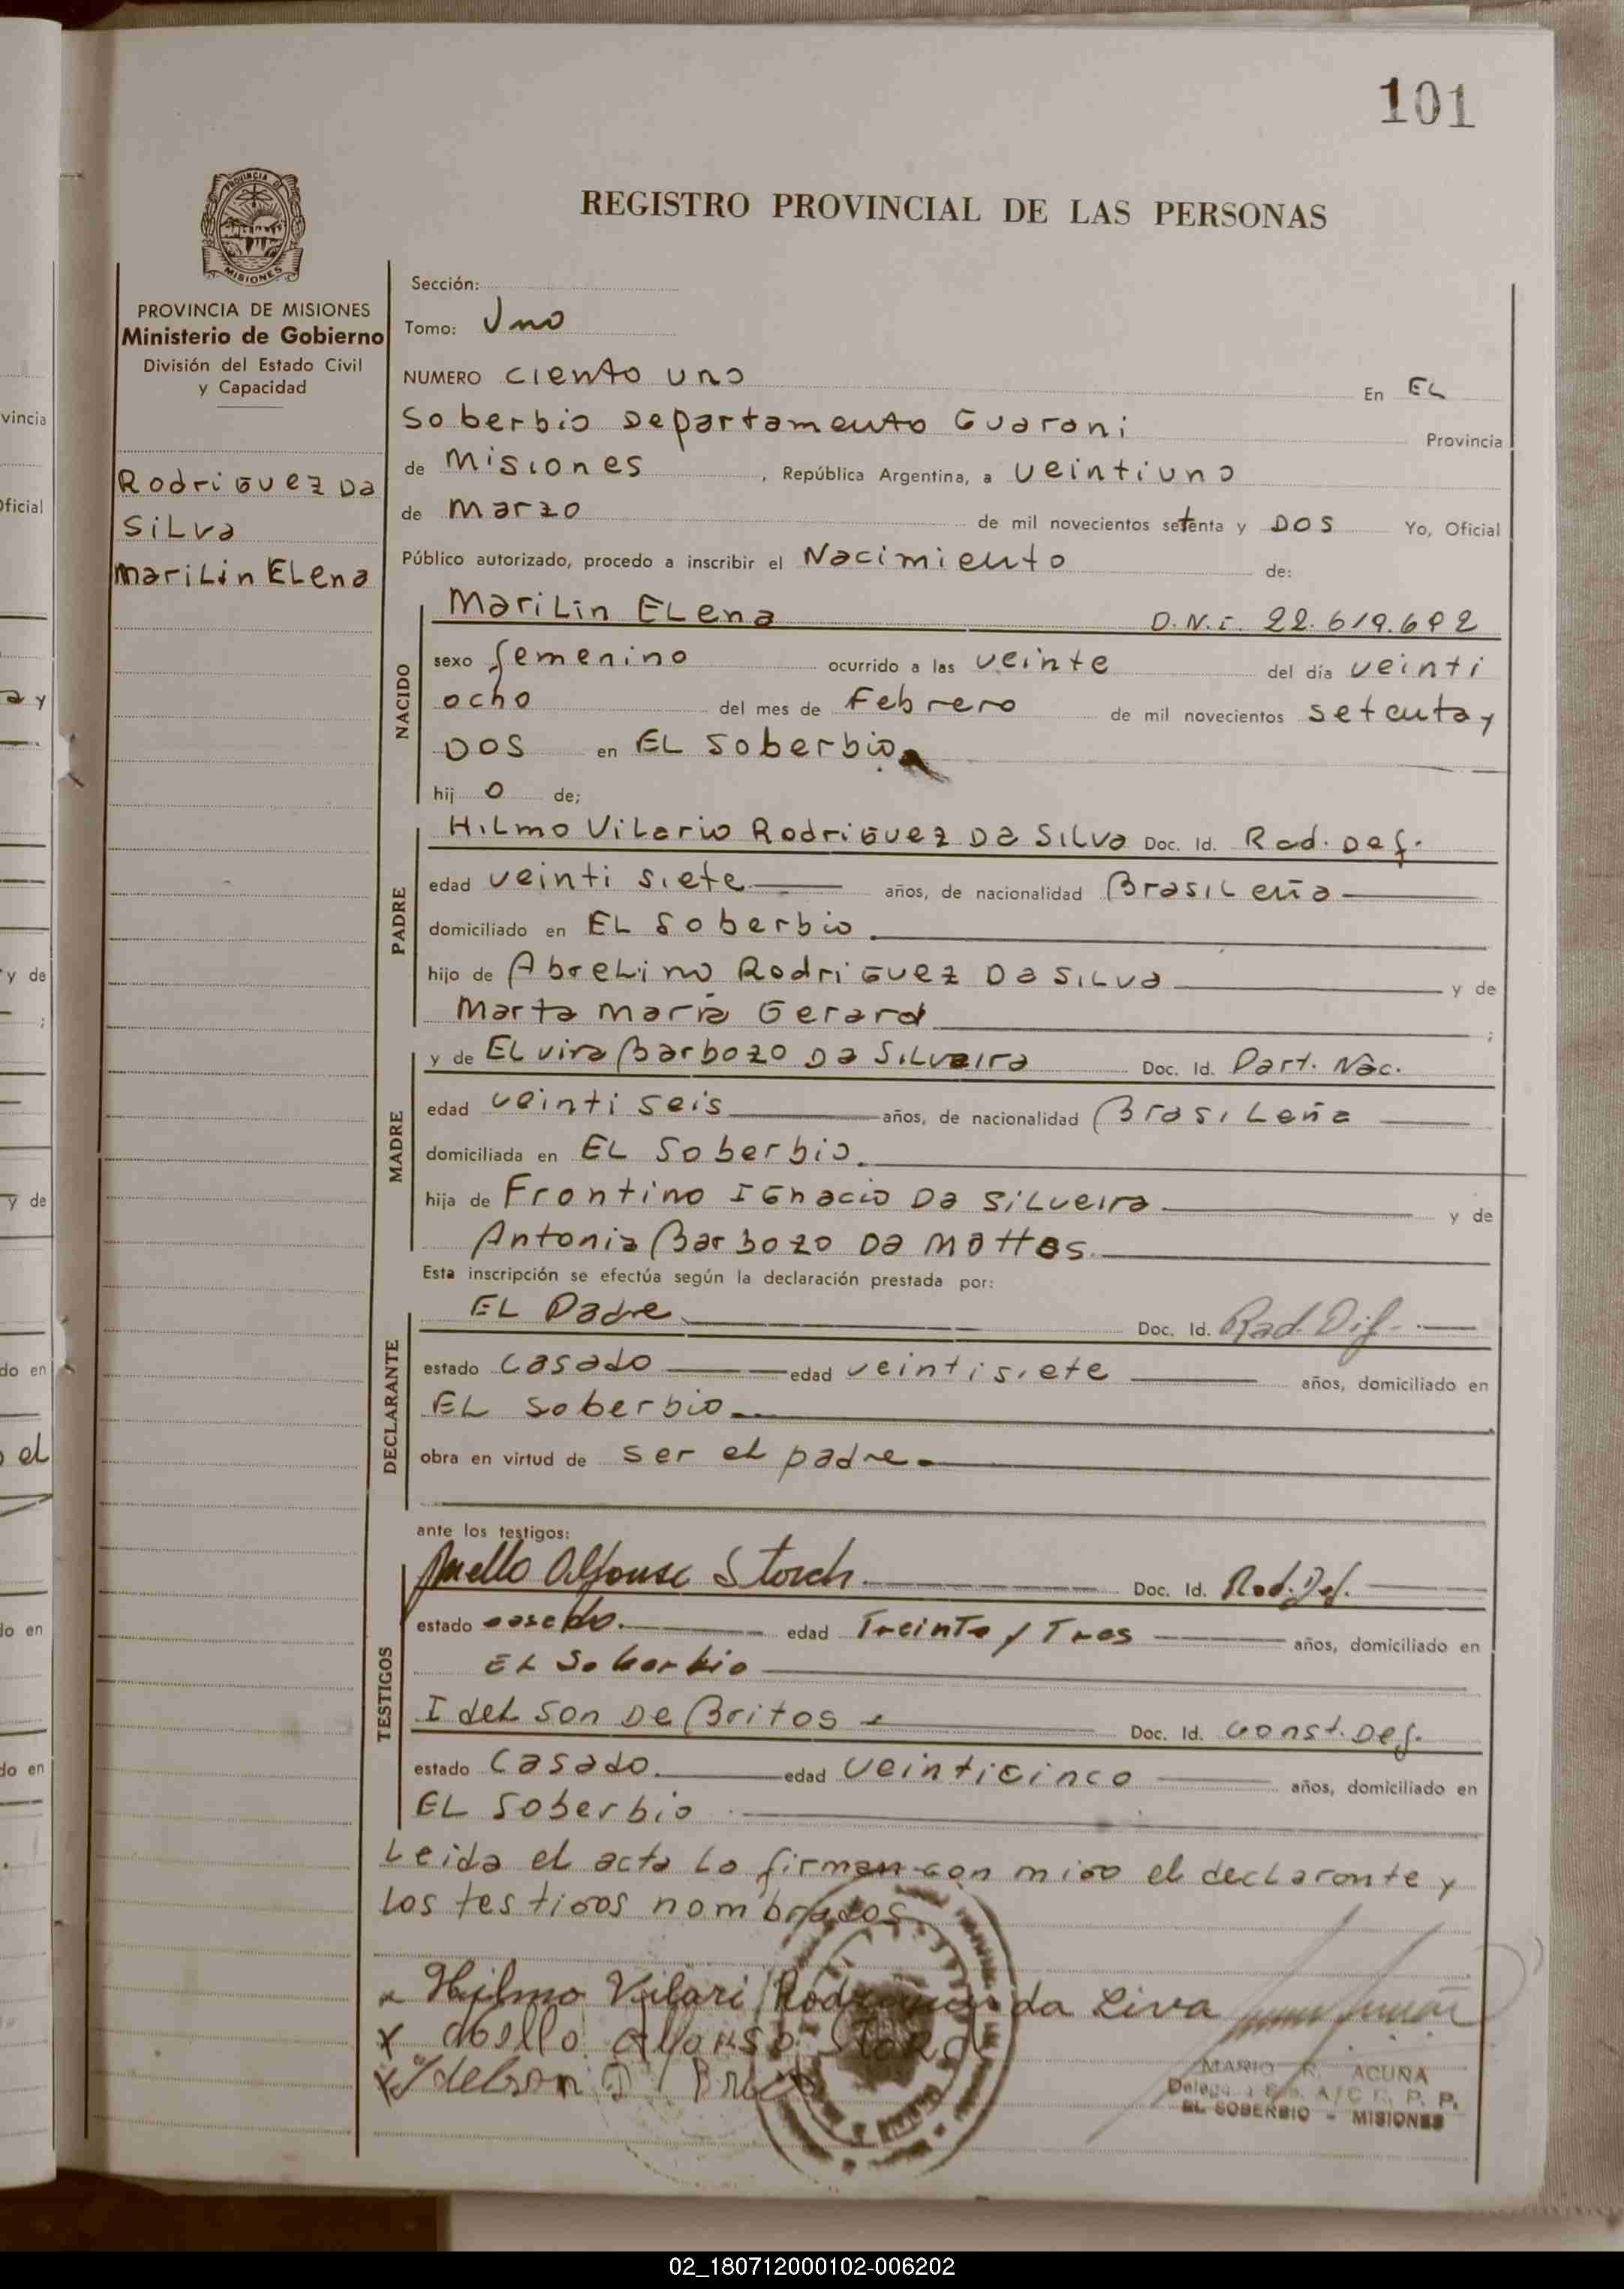 101
PROVINCIA DE
MISIONES
REGISTRO PROVINCIAL DE LAS PERSONAS
PROVINCIA DE MISIONES
Ministerio de Gobierno
División del Estado Civil
y Capacidad
Rodriguez Da
Silva
Marilin Elena
Sección:
Tomo: Uno
NUMERO ciento uno En EL
Soberbio Departamento Guarani Provincia
de Misiones, República Argentina, a veintiuno
de marzo de mil novecientos setenta y DOS Yo, Oficial
Público autorizado, procedo a inscribir el Nacimiento de:
NACIDO
Marilin Elena D.N.I. 22.619.692
sexo femenino ocurrido a las veinte del día veinti
ocho del mes de Febrero de mil novecientos setenta y
DOS en EL Soberbio
hij o de;
PADRE
Hilmo Vilario Rodriguez Da Silva Doc. Id. Rad. Def.
edad veinti siete años, de nacionalidad Brasileña
domiciliado en EL Soberbio
hijo de Abrelino Rodriguez Da Silva y de
Marta maria Gerard ;
MADRE
y de Elvira Barbozo Da Silveira Doc. Id. Part. Nac.
edad veinti seis años, de nacionalidad Brasileña
domiciliada en EL Soberbio.
hija de Frontino Ignacio Da Silveira y de
Antonia Barbozo Da Mattos.
Esta inscripción se efectúa según la declaración prestada por:
DECLARANTE
EL Padre Doc. Id. Rad. Dif.
estado casado edad veintisiete años, domiciliado en
EL Soberbio
obra en virtud de ser el padre
ante los testigos:
TESTIGOS
Alfonso Storch Doc. Id. Rad. Def.
estado casado. edad Treinta y Tres años, domiciliado en
EL Soberbio
Idelson De Britos Doc. Id. Const. Def.
estado casado. edad veinticinco años, domiciliado en
EL Soberbio
Leida el acta la firman con migo el declarante y
los testigos nombrados.
x Hilmo Vilari Rodriguez da Liva
x Alfonso Storch
x Idelson D
MARIO R. ACUÑA
A/C R. P. P.
EL SOBERBIO - MISIONES
vincia
Oficial
a y
y de
;
y de
do en
o el
do en
do en
02_180712000102-006202